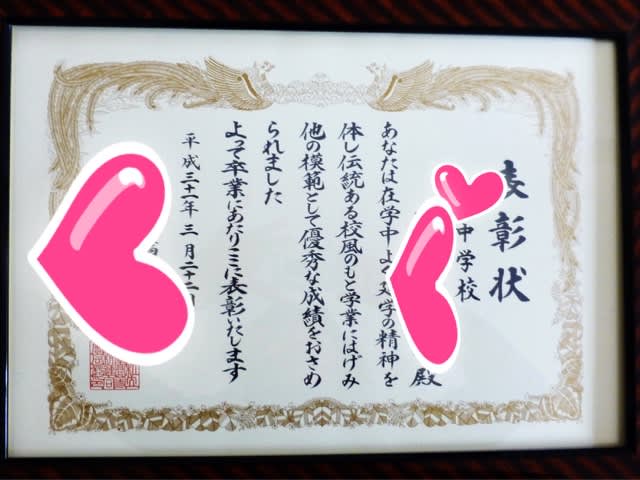 表彰状
中学校
殿
あなたは在学中よく建学の精神を
体し伝統ある校風のもと学業にはげみ
他の模範として優秀な成績をおさめ
られました
よって卒業にあたりここに表彰いたします
平成三十一年三月二十二日